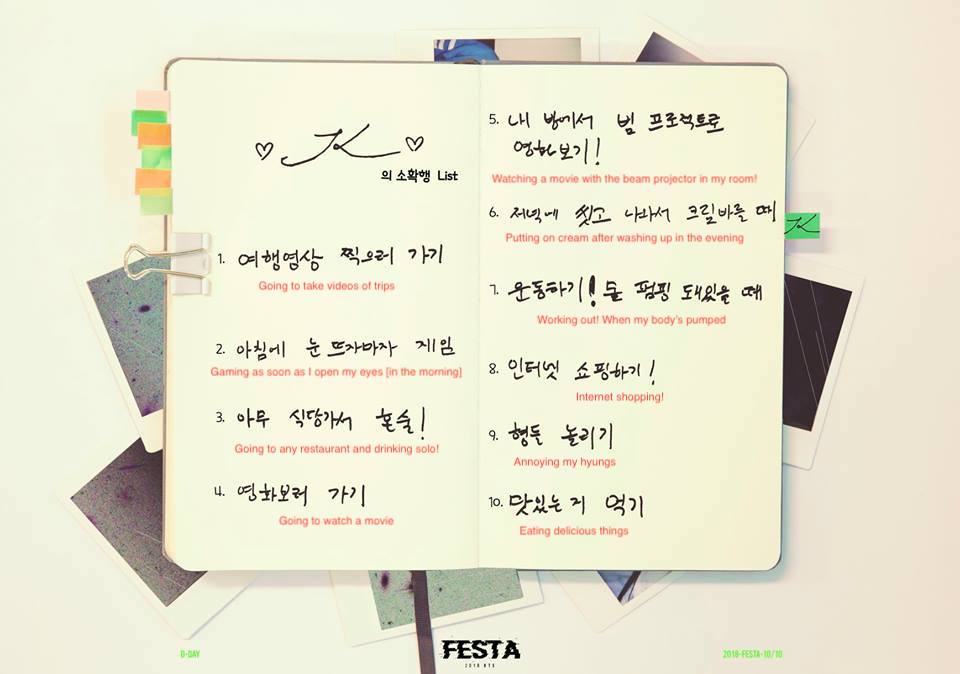 K
의 소확행 List
1. 여행영상 찍으러 가기
Going to take videos of trips
2. 아침에 눈 뜨자마자 게임
Gaming as soon as I open my eyes [in the morning]
3. 아무 식당가서 혼술!
Going to any restaurant and drinking solo!
4. 영화보러 가기
Going to watch a movie
5. 내 방에서 빔 프로젝트로
영화보기!
Watching a movie with the beam projector in my room!
6. 저녁에 씻고 나와서 크림바를 때
Putting on cream after washing up in the evening
7. 운동하기! 몸 펌핑 돼있을 때
Working out! When my body's pumped
8. 인터넷 쇼핑하기!
Internet shopping!
9. 형들 놀리기
Annoying my hyungs
10. 맛있는 거 먹기
Eating delicious things
K
D-DAY
FESTA
2018 BTS
2018-FESTA-10/10